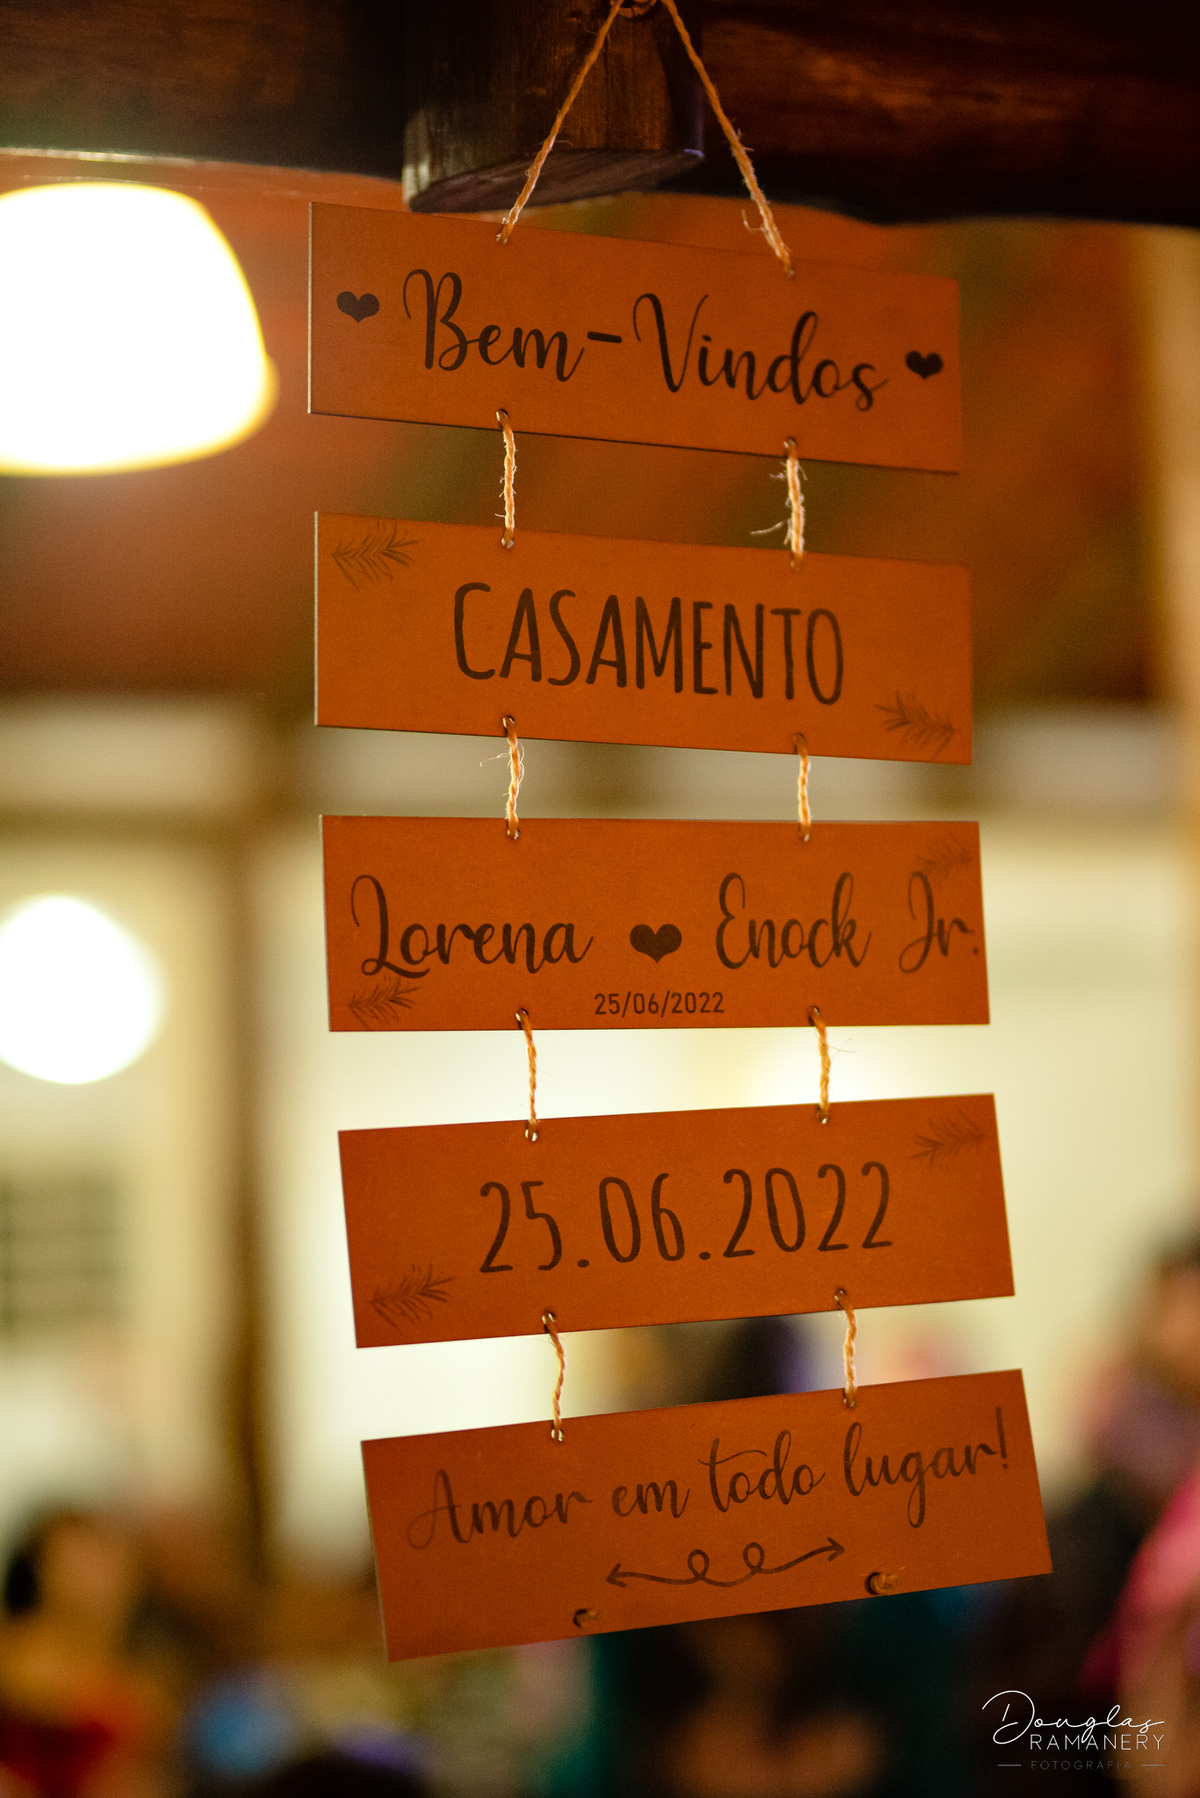 Bem-Vindos
CASAMENTO
Lorena ❤ Enock Jr.
25/06/2022
25.06.2022
Amor em todo lugar!
Douglas
RAMANERY
FOTOGRAFIA